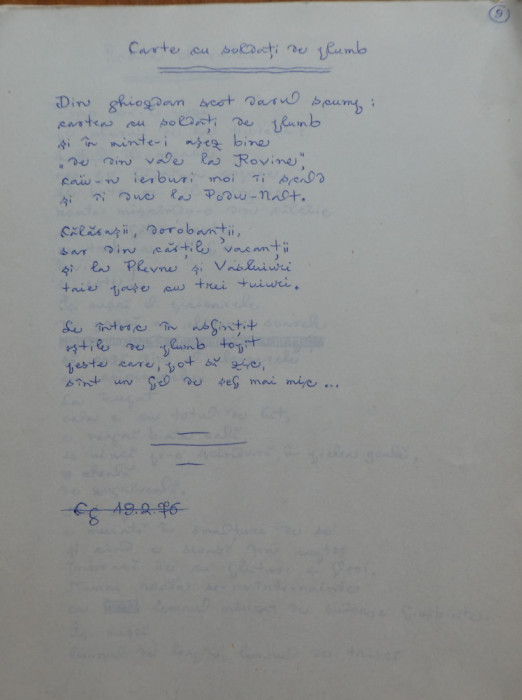 9
Carte cu soldați de plumb
Din ghiozdan scot darul scump:
cartea cu soldați de plumb
și în minte-i așez bine
"de din vale la Rovine",
căci-n ierburi moi îi scald
și îi duc la Podu-Nalt.
Călărașii, dorobanții,
sar din cărțile vacanții
și la Plevne și Vasluiuri
taie pașe cu trei tuiuri.
Le întorc în asfințit
oștile de plumb topit
peste care, pot să zic,
sînt un fel de șef mai mic...
Cg 19.2.76